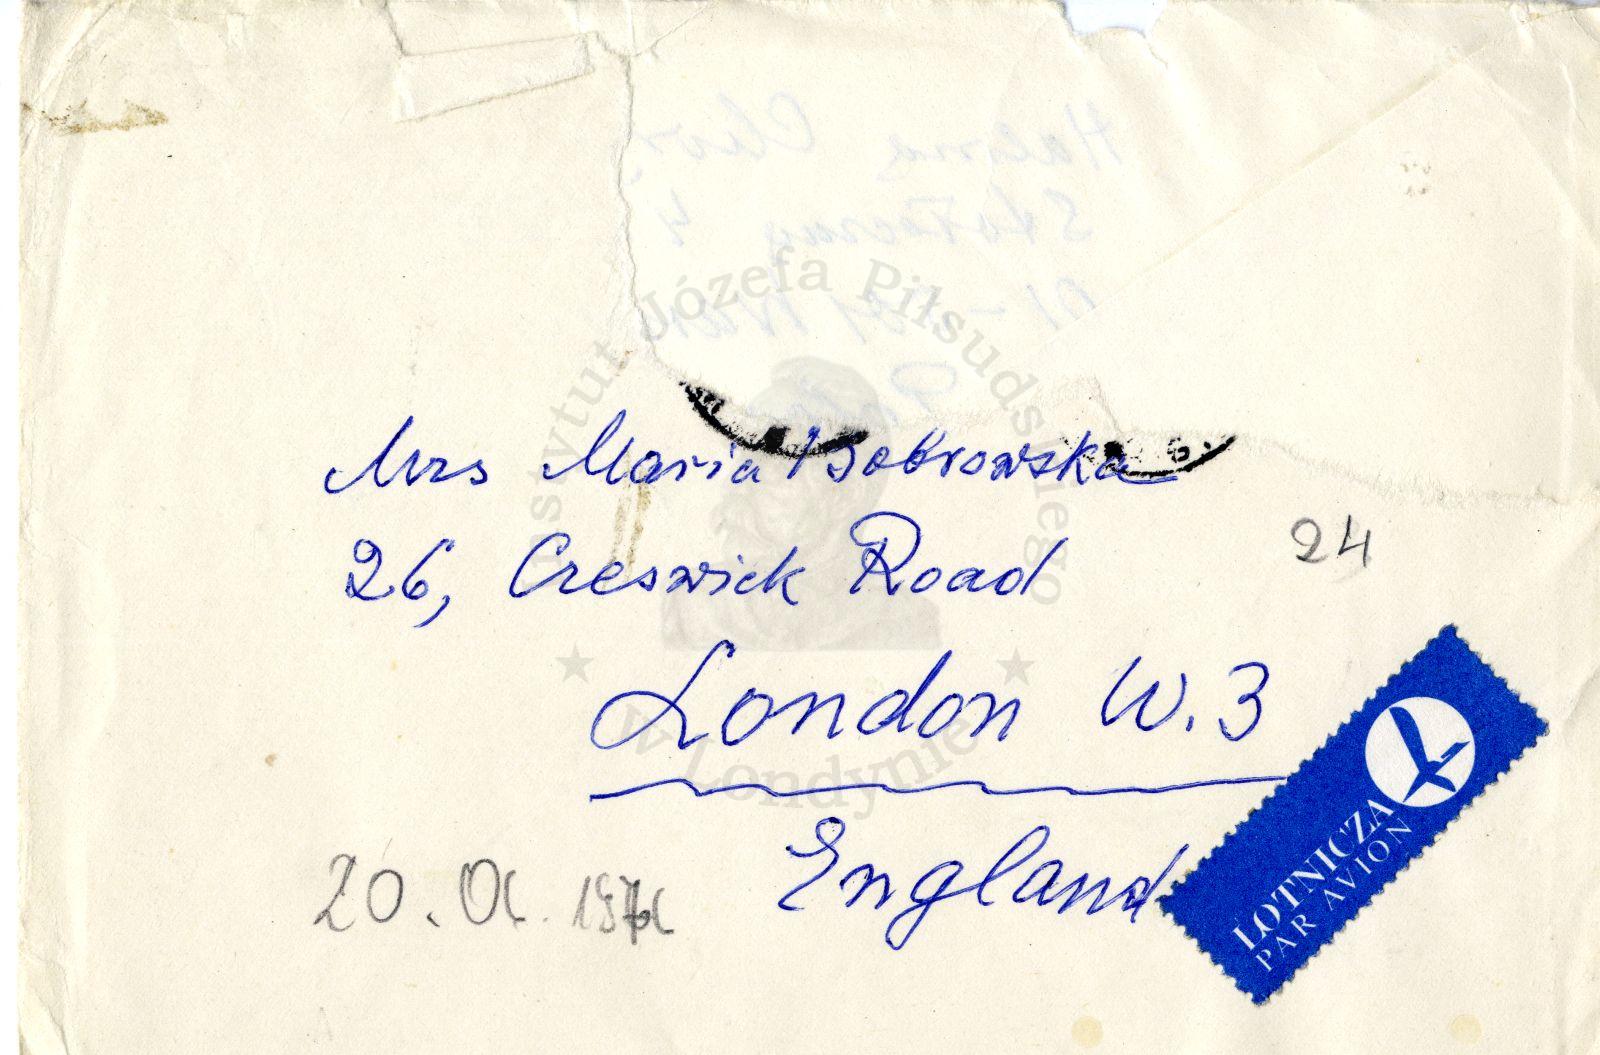 Mrs Maria Bobrowska
26, Creswick Road
24
London W.3
England
20. IX. 197
LOTNICZA
PAR AVION
Instytut Józefa Piłsudskiego
w Londynie